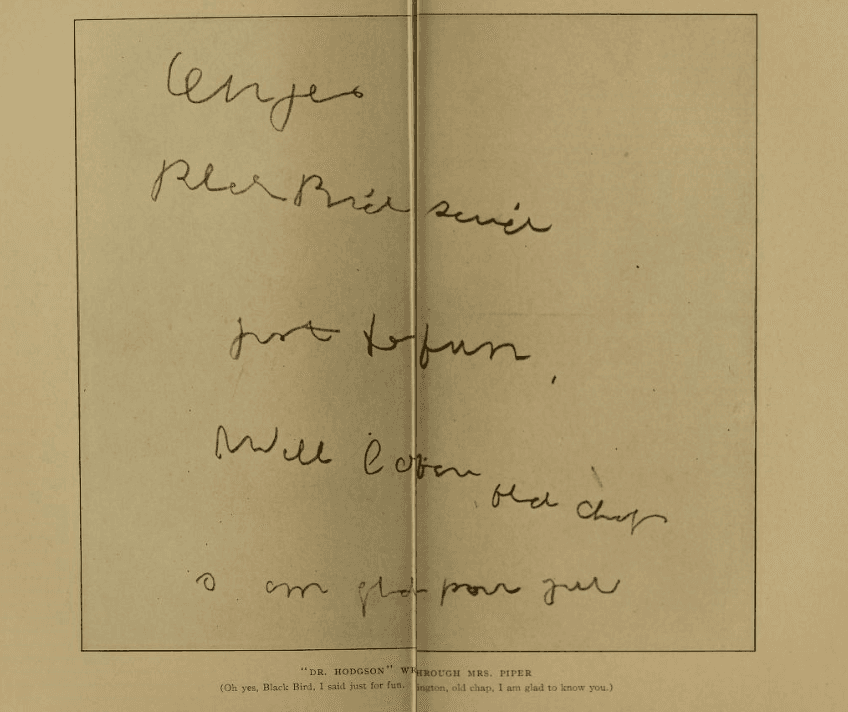 Oh yes
Black Bird said
just for fun,
Well
old chap
I am glad
"DR. HODGSON" W HROUGH MRS. PIPER
(Oh yes, Black Bird, I said just for fun. ington, old chap, I am glad to know you.)